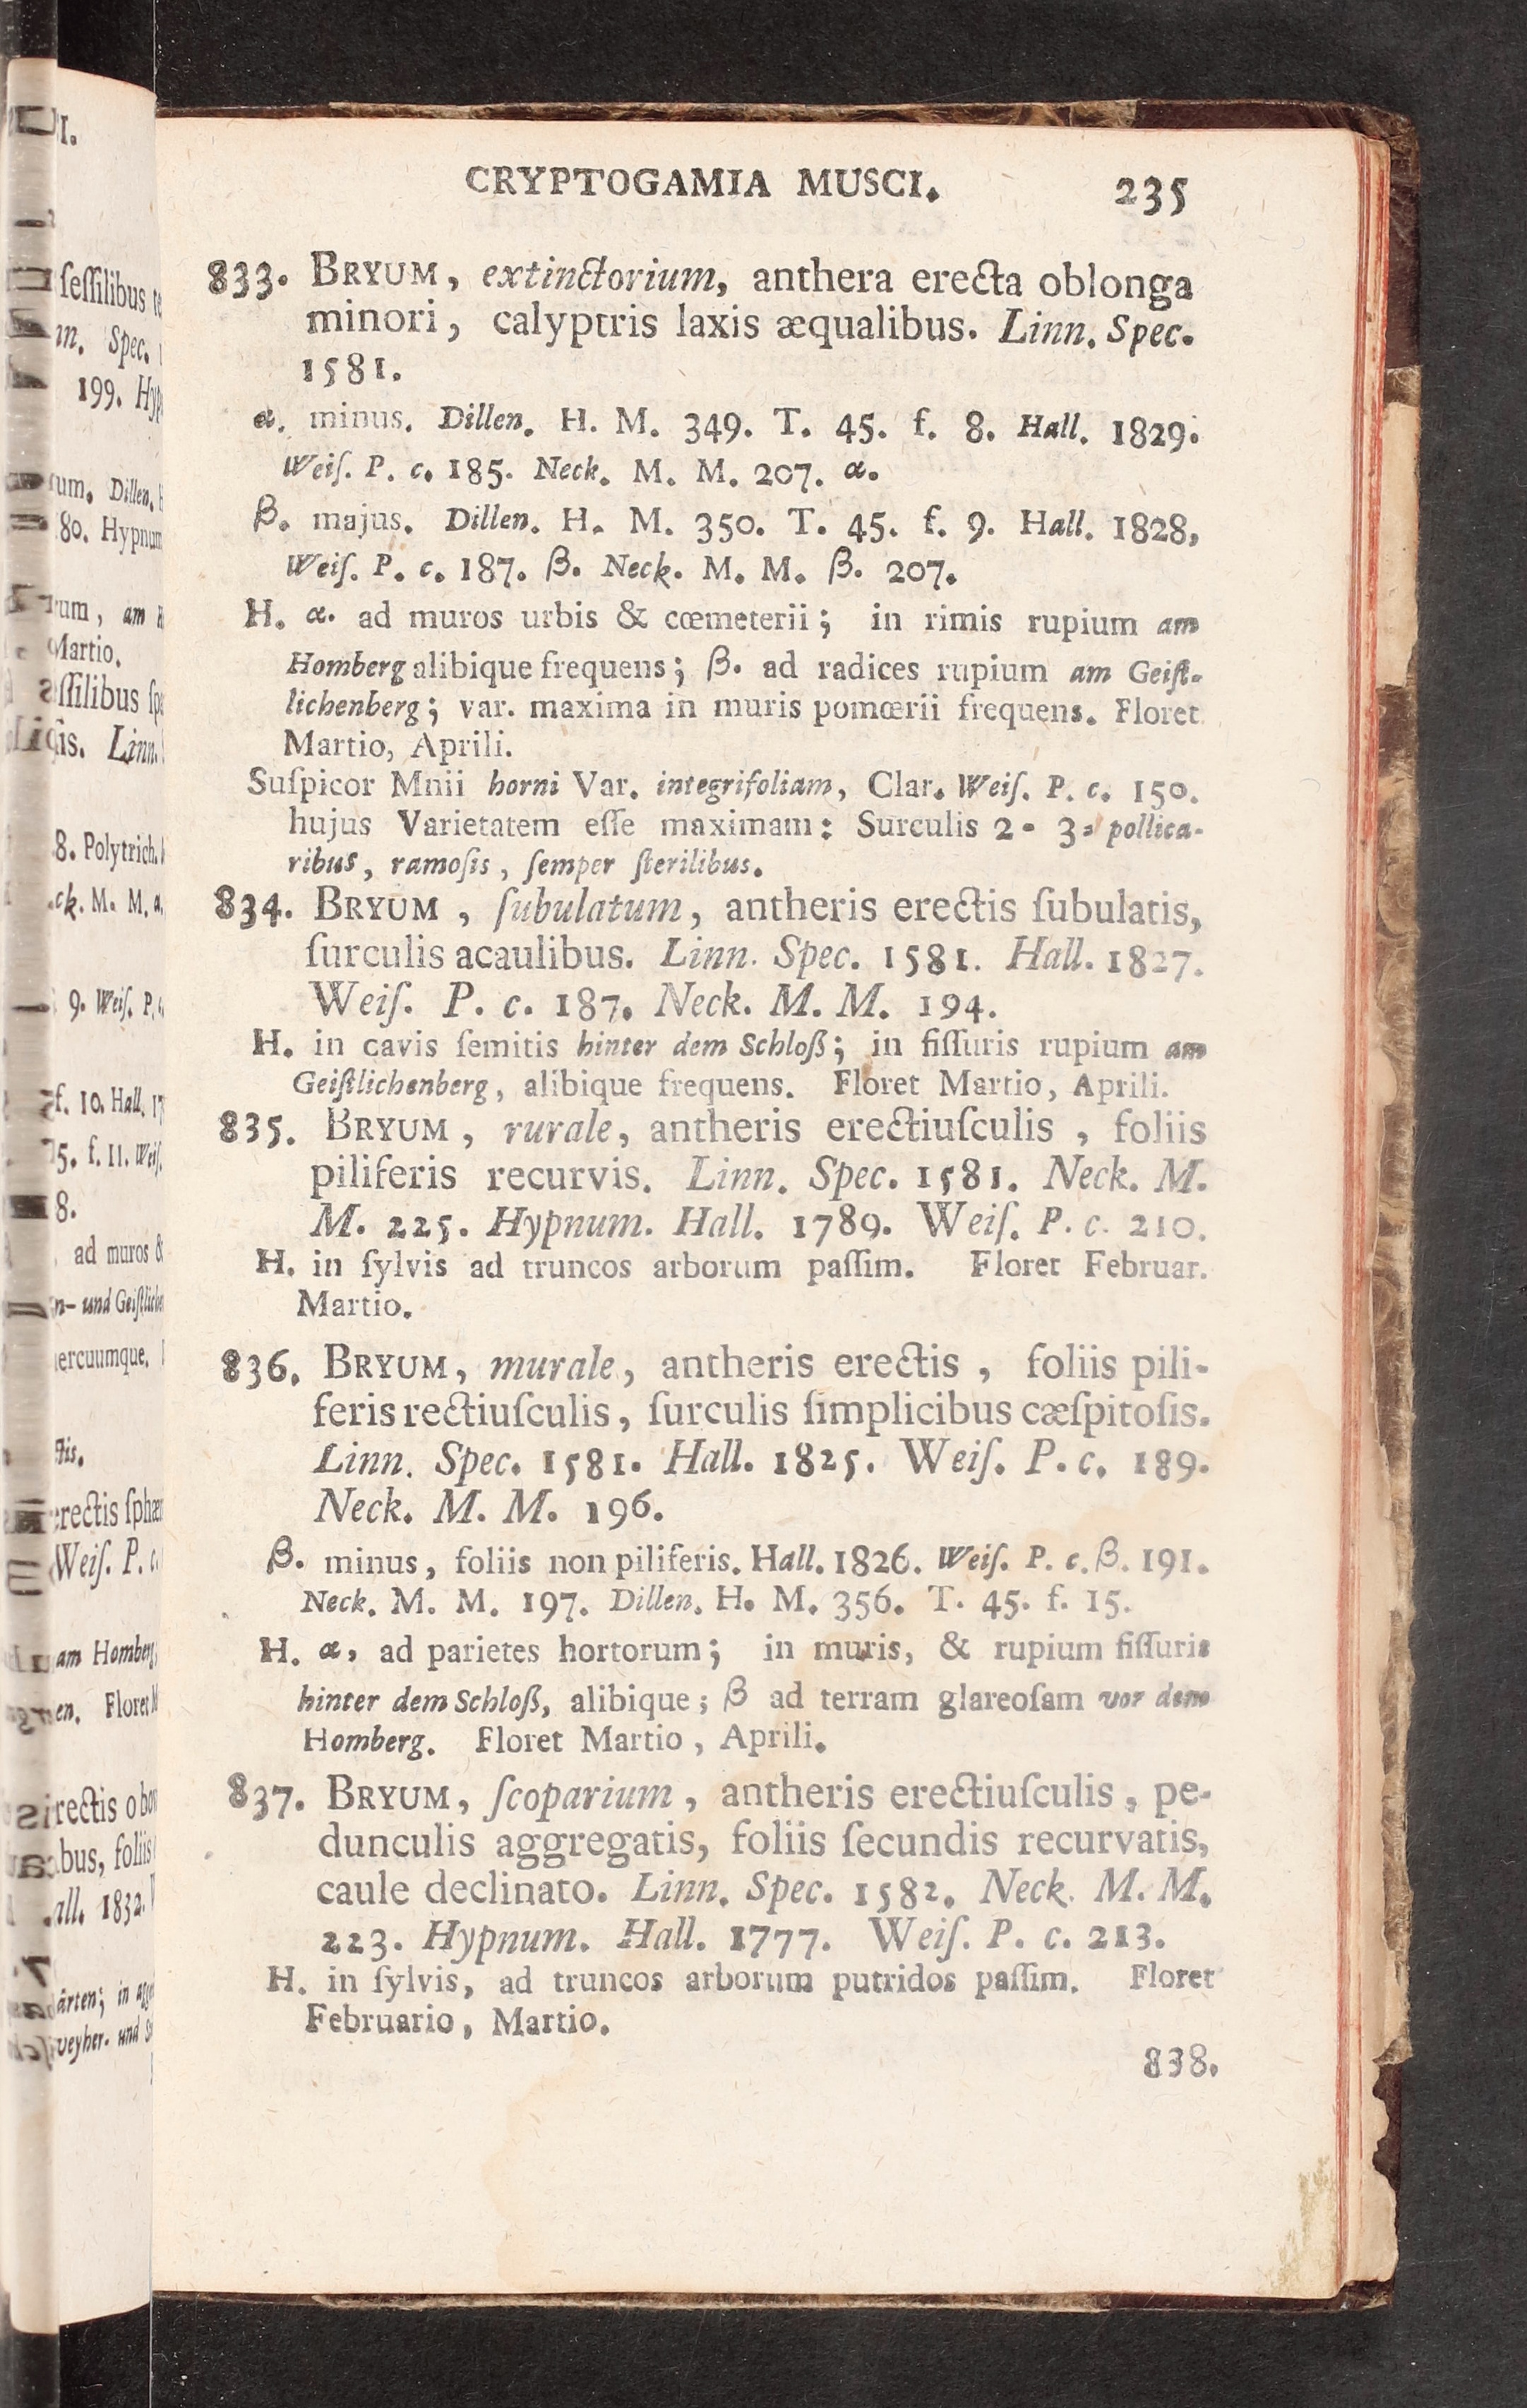 CRYPTOGAMIA MUSCI. 235
833. BRYUM, extinctorium, anthera erecta oblonga
minori, calyptris laxis æqualibus. Linn. Spec.
1581.
α. minus. Dillen. H. M. 349. T. 45. f. 8. Hall. 1829.
Weiſ. P. c. 185. Neck. M. M. 207. α.
β. majus. Dillen. H. M. 350. T. 45. f. 9. Hall. 1828,
Weiſ. P. c. 187. β. Neck. M. M. β. 207.
H. α. ad muros urbis & cœmeterii; in rimis rupium am
Homberg alibique frequens; β. ad radices rupium am Geiſt-
lichenberg; var. maxima in muris pomœrii frequens. Floret
Martio, Aprili.
Suſpicor Mnii horni Var. integrifoliam, Clar. Weiſ. P. c. 150.
hujus Varietatem eſſe maximam: Surculis 2- 3-pollica-
ribus, ramoſis, ſemper ſterilibus.
834. BRYUM, ſubulatum, antheris erectis ſubulatis,
ſurculis acaulibus. Linn. Spec. 1581. Hall. 1827.
Weiſ. P. c. 187. Neck. M. M. 194.
H. in cavis ſemitis hinter dem Schloß; in fiſſuris rupium am
Geiſtlichenberg, alibique frequens. Floret Martio, Aprili.
835. BRYUM, rurale, antheris erectiuſculis, foliis
piliferis recurvis. Linn. Spec. 1581. Neck. M.
M. 225. Hypnum. Hall. 1789. Weiſ. P. c. 210.
H. in ſylvis ad truncos arborum paſſim. Floret Februar.
Martio.
836. BRYUM, murale, antheris erectis, foliis pili-
feris rectiuſculis, ſurculis ſimplicibus cæſpitoſis.
Linn. Spec. 1581. Hall. 1825. Weiſ. P. c. 189.
Neck. M. M. 196.
β. minus, foliis non piliferis. Hall. 1826. Weiſ. P. c. β. 191.
Neck. M. M. 197. Dillen. H. M. 356. T. 45. f. 15.
H. α, ad parietes hortorum; in muris, & rupium fiſſuris
hinter dem Schloß, alibique; β ad terram glareoſam vor dem
Homberg. Floret Martio, Aprili.
837. BRYUM, ſcoparium, antheris erectiuſculis, pe-
dunculis aggregatis, foliis ſecundis recurvatis,
caule declinato. Linn. Spec. 1582. Neck. M. M.
223. Hypnum. Hall. 1777. Weiſ. P. c. 213.
H. in ſylvis, ad truncos arborum putridos paſſim. Floret
Februario, Martio.
838.